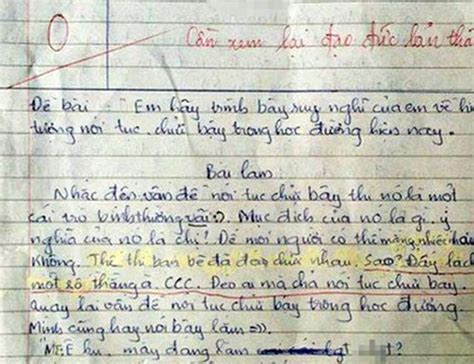 0
Cần xem lại đạo đức bản thâ
Đề bài: "Em hãy trình bày suy nghĩ của em về hi
tượng nói tục, chửi bậy trong học đường hiện nay.
Bài làm
Nhắc đến vấn đề nói tục chửi bậy thì nó là một
cái trò bình thường vãi :). Mục đích của nó là gì.. ý
nghĩa của nó là chi! Để mọi người có thể mắng nhiếc
không. Thế thì bạn bè đã chửi nhau. Sao? Đấy
một số thằng à. CCC. Đéo ai mà chả nói tục chửi bậy.
quay lại vấn đề nói tục chửi bậy trong học đường.
Mình cũng hay nói bậy lắm =)).
mày đang làm